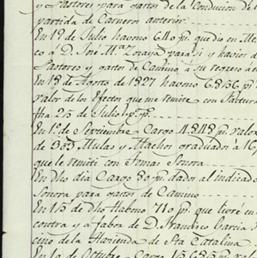 y Pastores para gastos de la Conducion de
partida de Carneros anterior
En 1º de Julio havono 640 ps. que dio en Me
co a D. José Mª Loaya para si y havios de
Pastores y gastos de Camino a su regreso a
En 18 de Agosto de 1827 havono 6,856 ps
valor de los Efectos que me remite con Fatura
fha 25 de Julio pp.
En 1º de Septiembre Cargo 4,848 ps. valor
de 303 Mulas y Machos graduados a 16
que le remiti con Tomas Sonora
En dho dia Cargo 80 ps. dado al indicado
Sonora para gastos de Camino
En 15 de dho Habono 710 ps. que libré en
contra y a fabor de D. Francisco Garcia
ceno de la Hacienda de Sta Catalina
En 1º de Octubre Cargo 15,685 ps. valor